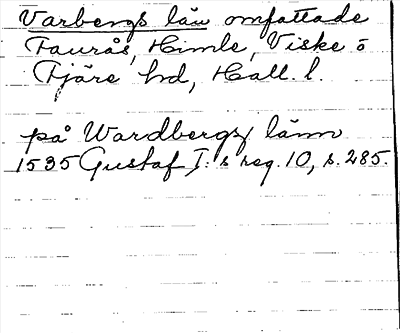 Varbergs län omfattade
Faurås, Himle, Viske o
Fjäre hd, Hall. l.
på Wardbergs länn
1535 Gustaf I:s reg. 10, s. 285.